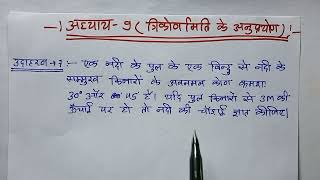 अध्याय-9 ( त्रिकोणमिति के अनुप्रयोग )
उदाहरण-7: एक नदी के पुल के एक बिन्दु से नदी के
सम्मुख किनारों के अवनमन कोण क्रमशः
30° और 45 हैं। यदि पुल किनारों से 3m की
ऊँचाई पर हो तो नदी की चौड़ाई ज्ञात कीजिए।